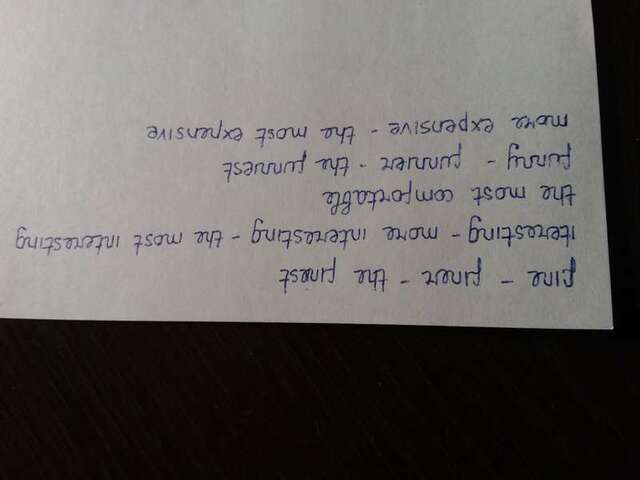 fine - finer - the finest
iteresting - more interesting - the most interesting
the most comfortable
funny - funnier - the funniest
more expensive - the most expensive